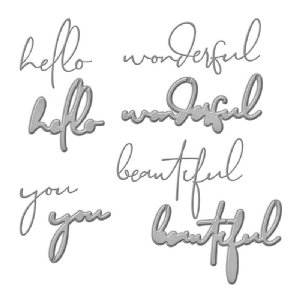 hello
wonderful
hello
wonderful
you
beautiful
you
beautiful